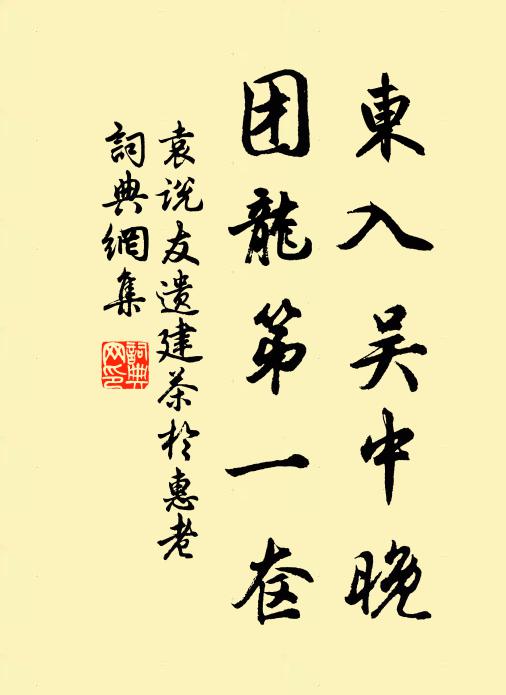 東入吴中晚
团龍第一奁
袁说友遗建茶於惠老
詞典網集
詞典网印